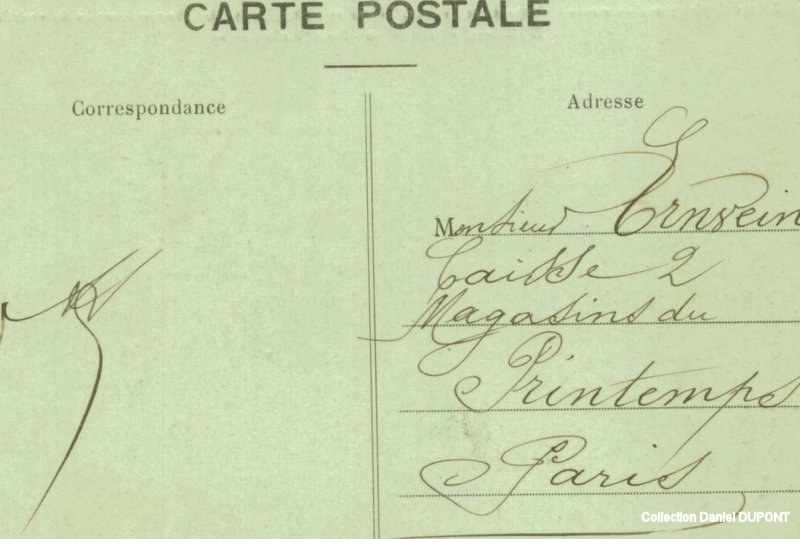 CARTE POSTALE
Correspondance
Adresse
Monsieur Ernwein
Caisse 2
Magasins du
Printemps
Paris
Collection Daniel DUPONT